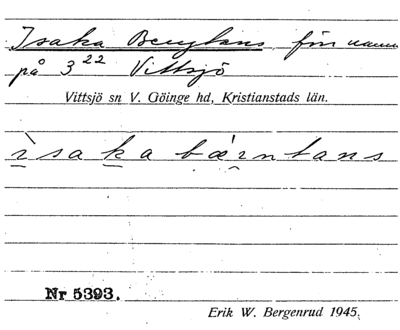 Isaka Bengtans för namn
på 3²² Vittsjö
Vittsjö sn V. Göinge hd, Kristianstads län.
ìsaka bæ̀ntans
Nr 5393.
Erik W. Bergenrud 1945.